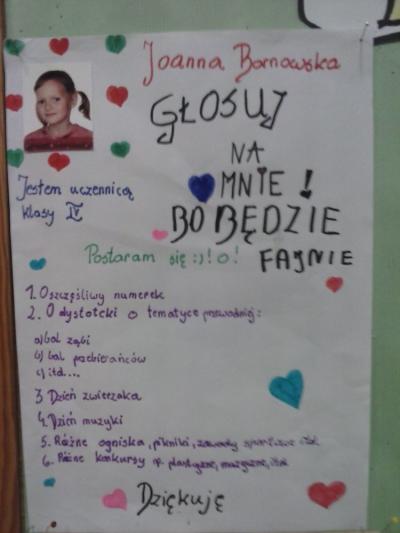 Joanna Barnowska
GŁOSUJ
NA
MNIE!
BO BĘDZIE
FAJNIE
Jestem uczennicą
klasy IV
Postaram się :)! o!
1. O szczęśliwy numerek
2. O dystoteki o tematyce przewodniej:
a) bal
b) bal przebierańców
c) itd....
3 Dzień zwierzaka
4. Dzień muzyki
5. Różne ogniska, pikniki, zawody sportowe itd.
6. Różne konkursy np. plastyczne, muzyczne, itd.
Dziękuję